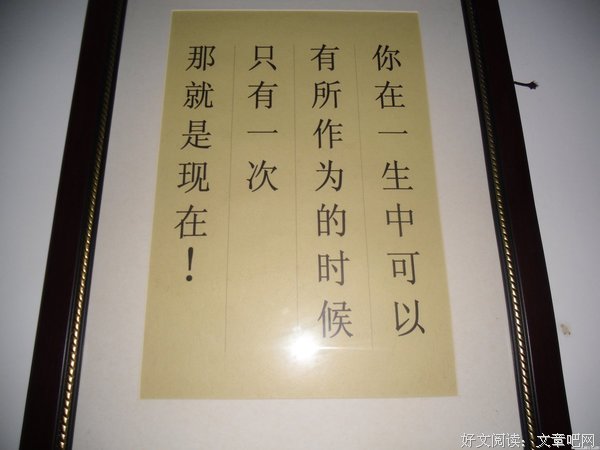 你在一生中可以
有所作为的时候
只有一次
那就是现在！
好文阅读：文章吧网